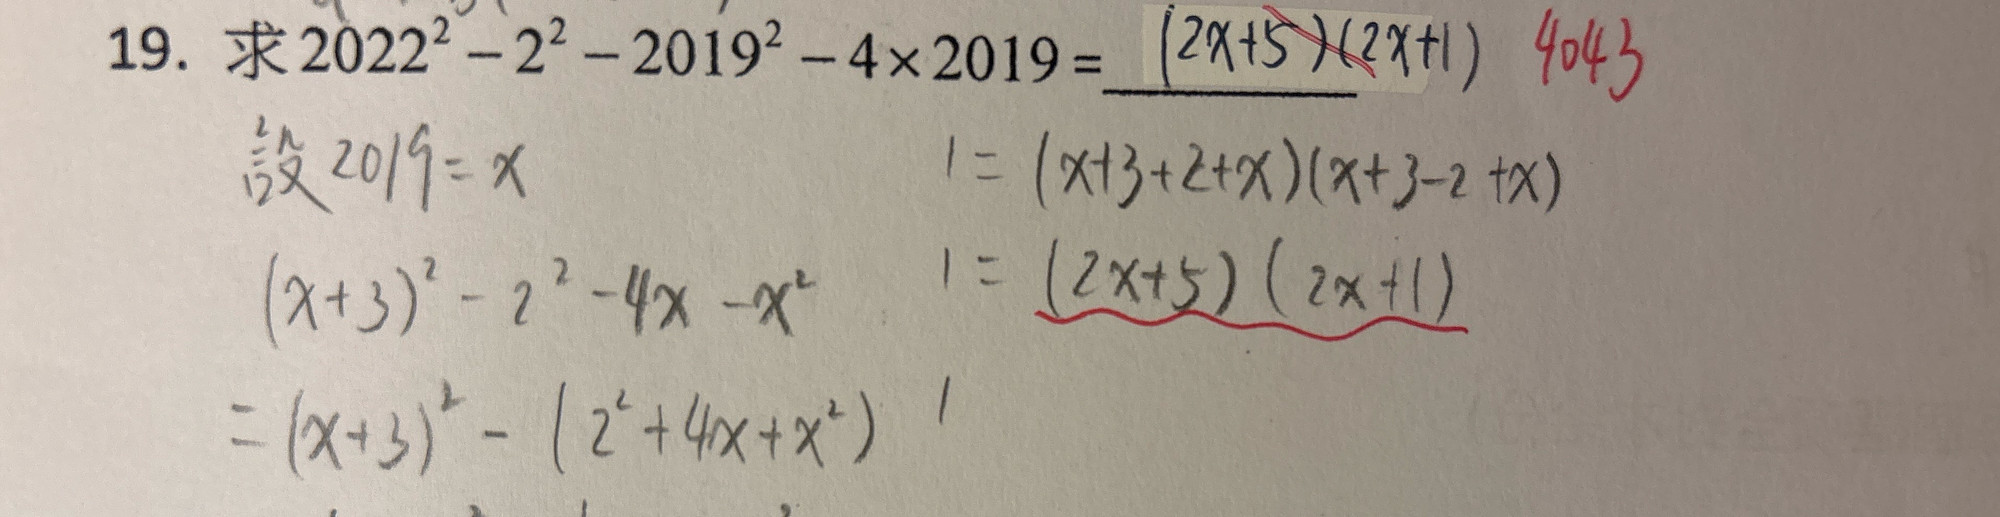 19. 求 2022² − 2² − 2019² − 4 × 2019 = (2x+5)(2x+1) 4043
設 2019 = x
(x+3)² - 2² - 4x - x²
= (x+3)² - (2² + 4x + x²)
= (x+3+2+x)(x+3-2+x)
= (2x+5)(2x+1)